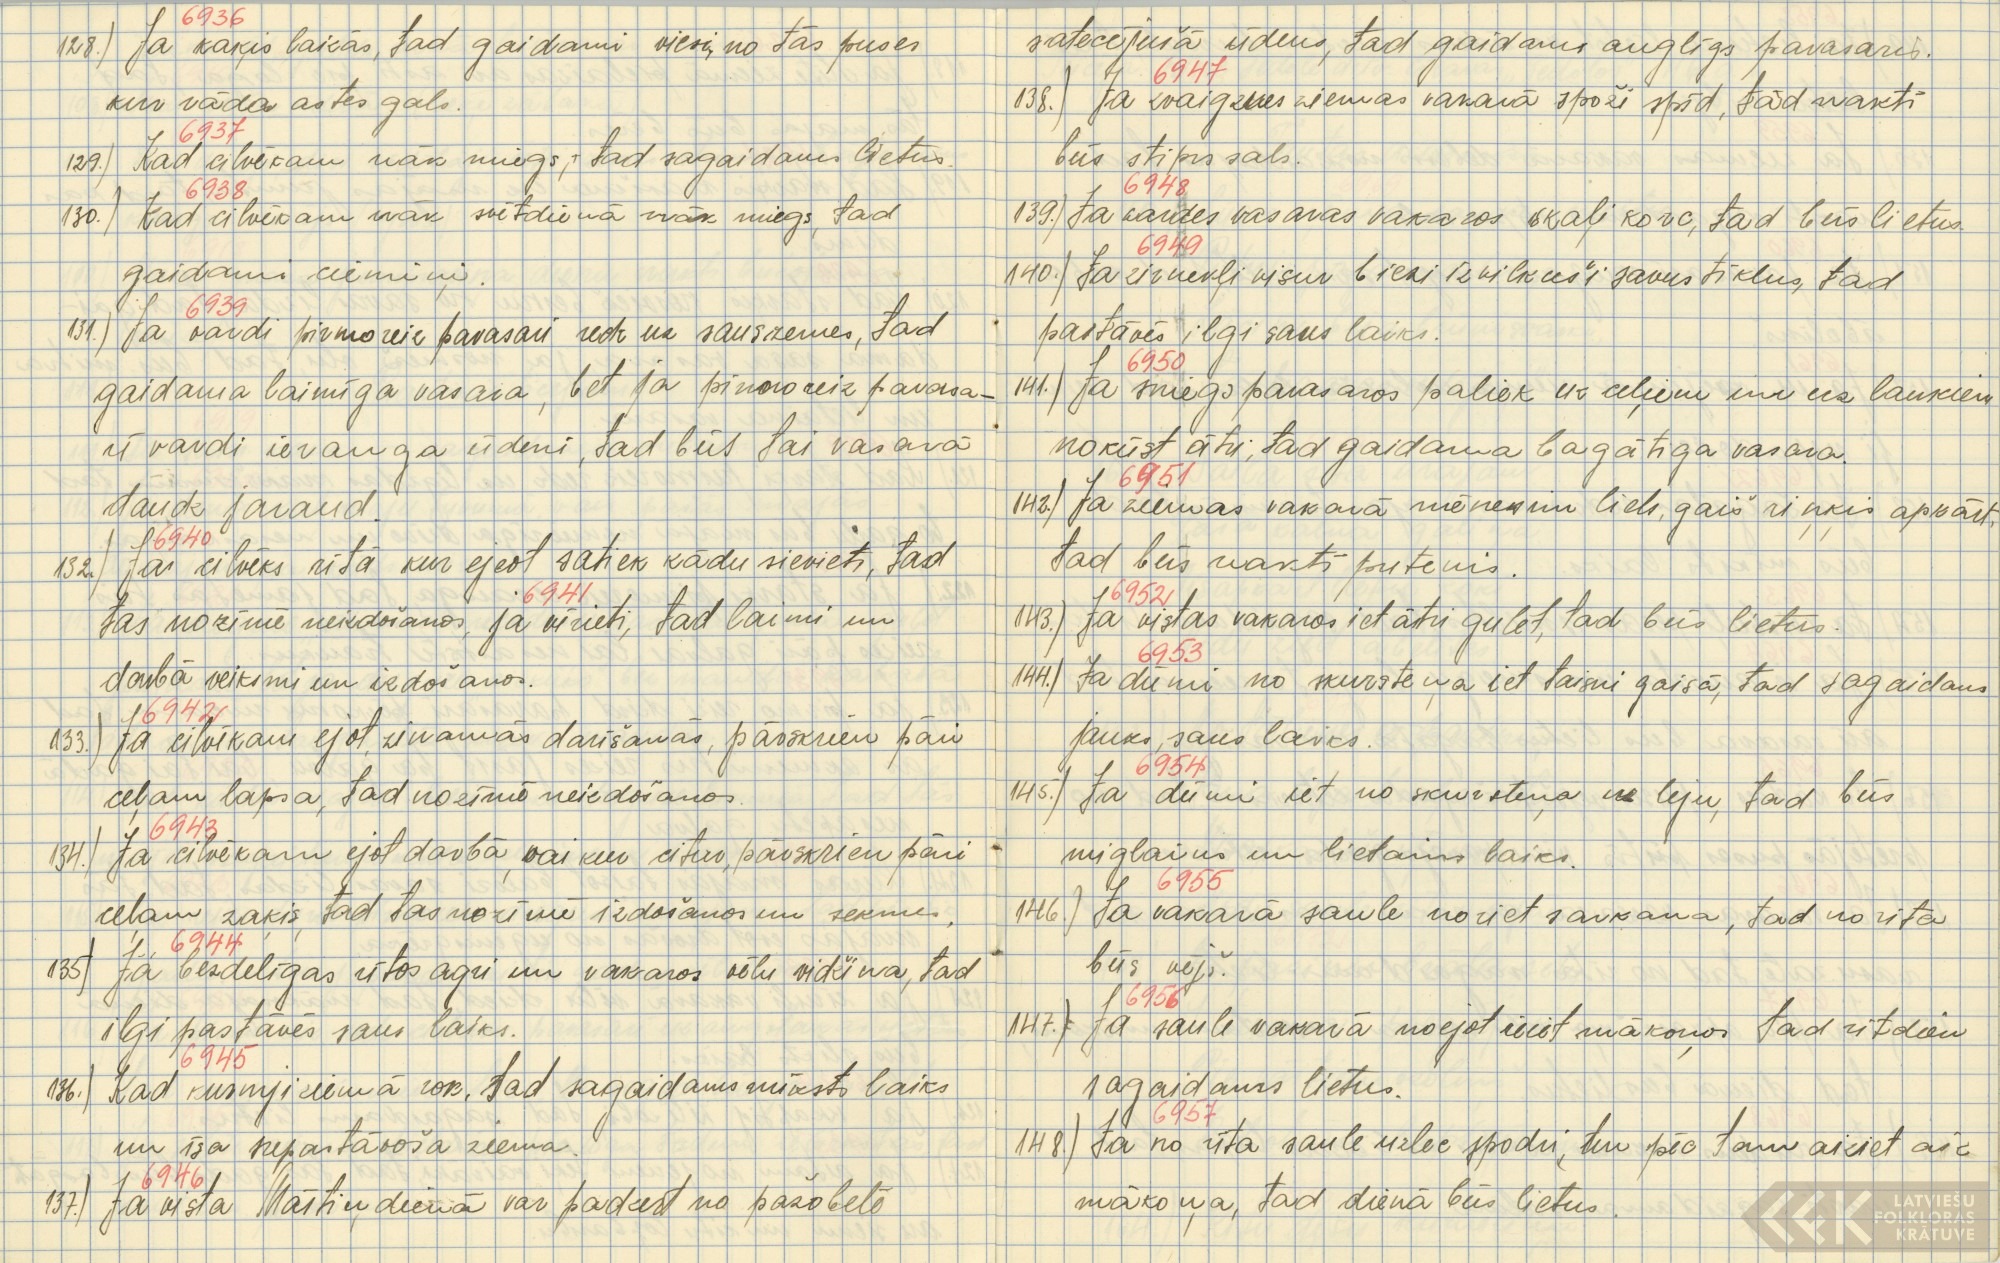 6936
128.) Ja kaķis laizās, tad gaidami viesi, no tās puses
kur rāda astes gals.
6937
129.) Kad cilvēkam nāk miegs, tad sagaidams lietus.
6938
130.) Kad cilvēkam nāk svētdienā nāk miegs, tad
gaidami ciemiņi.
6939
131.) Ja vardi pirmoreiz pavasari redz uz sauszemes, tad
gaidama laimiga vasara, bet ja pirmoreiz pavasa-
ri vardi ierauga ūdeni, tad būs tai vasarā
daudz jaraud.
6940
132.) Ja cilvēks rītā kur ejeot satiek kādu sievieti, tad
6941
tas nozīmē neizdošanos, ja vīrieti, tad laimi un
darbā veiksmi un izdošanos.
6942
133.) Ja cilvēkam ejot, zinamās darīšanās, pārskrien pāri
ceļam lapsa, tad nozīmē neizdošanos.
6943
134.) Ja cilvēkam ejot darbā, vai kur citur, pārskrien pāri
ceļam zaķis, tad tas nozīmē izdošanos un sekmes.
6944
135) Ja bezdelīgas rītos agri un vakaros vēlu vidžina, tad
ilgi pastāvēs saus laiks.
6945
136.) Kad kurmji ziemā rok, tad sagaidams mīksts laiks
un īsa nepastāvoša ziema.
6946
137.) Ja vista Mārtiņdienā var padzert no pažobelē
satecējušā ūdens, tad gaidams auglīgs pavasaris.
6947
138.) Ja zvaigznes ziemas vakarā spoži spīd, tad naktī
būs stiprs sals.
6948
139.) Ja vardes vasaras vakaros skaļi korc, tad būs lietus.
6949
140.) Ja zirnekļi visur biezi izvilkuši savus tīklus, tad
pastāvēs ilgi saus laiks.
6950
141.) Ja sniegs pavasaros paliek uz ceļiem un uz laukiem
nokūst ātri, tad gaidama bagātīga vasara.
6951
142.) Ja ziemas vakarā mēnesim liels, gaiš riņķis apkārt,
tad būs naktī putenis.
6952
143.) Ja vistas vakaros iet ātri gulēt, tad būs lietus.
6953
144.) Ja dūmi no skursteņa iet taisni gaisā, tad sagaidams
jauks, saus laiks.
6954
145.) Ja dūmi iet no skursteņa uz leju, tad būs
miglains un lietains laiks.
6955
146.) Ja vakarā saule noriet sarkana, tad no rīta
būs vējš.
6956
147.) Ja saule vakarā noejot ieiet mākoņos tad rītdien
sagaidams lietus.
6957
148) Ja no rīta saule uzlec spodri, un pēc tam aiziet aiz
mākoņa, tad dienā būs lietus.
LATVIEŠU
FOLKLORAS
KRĀTUVE